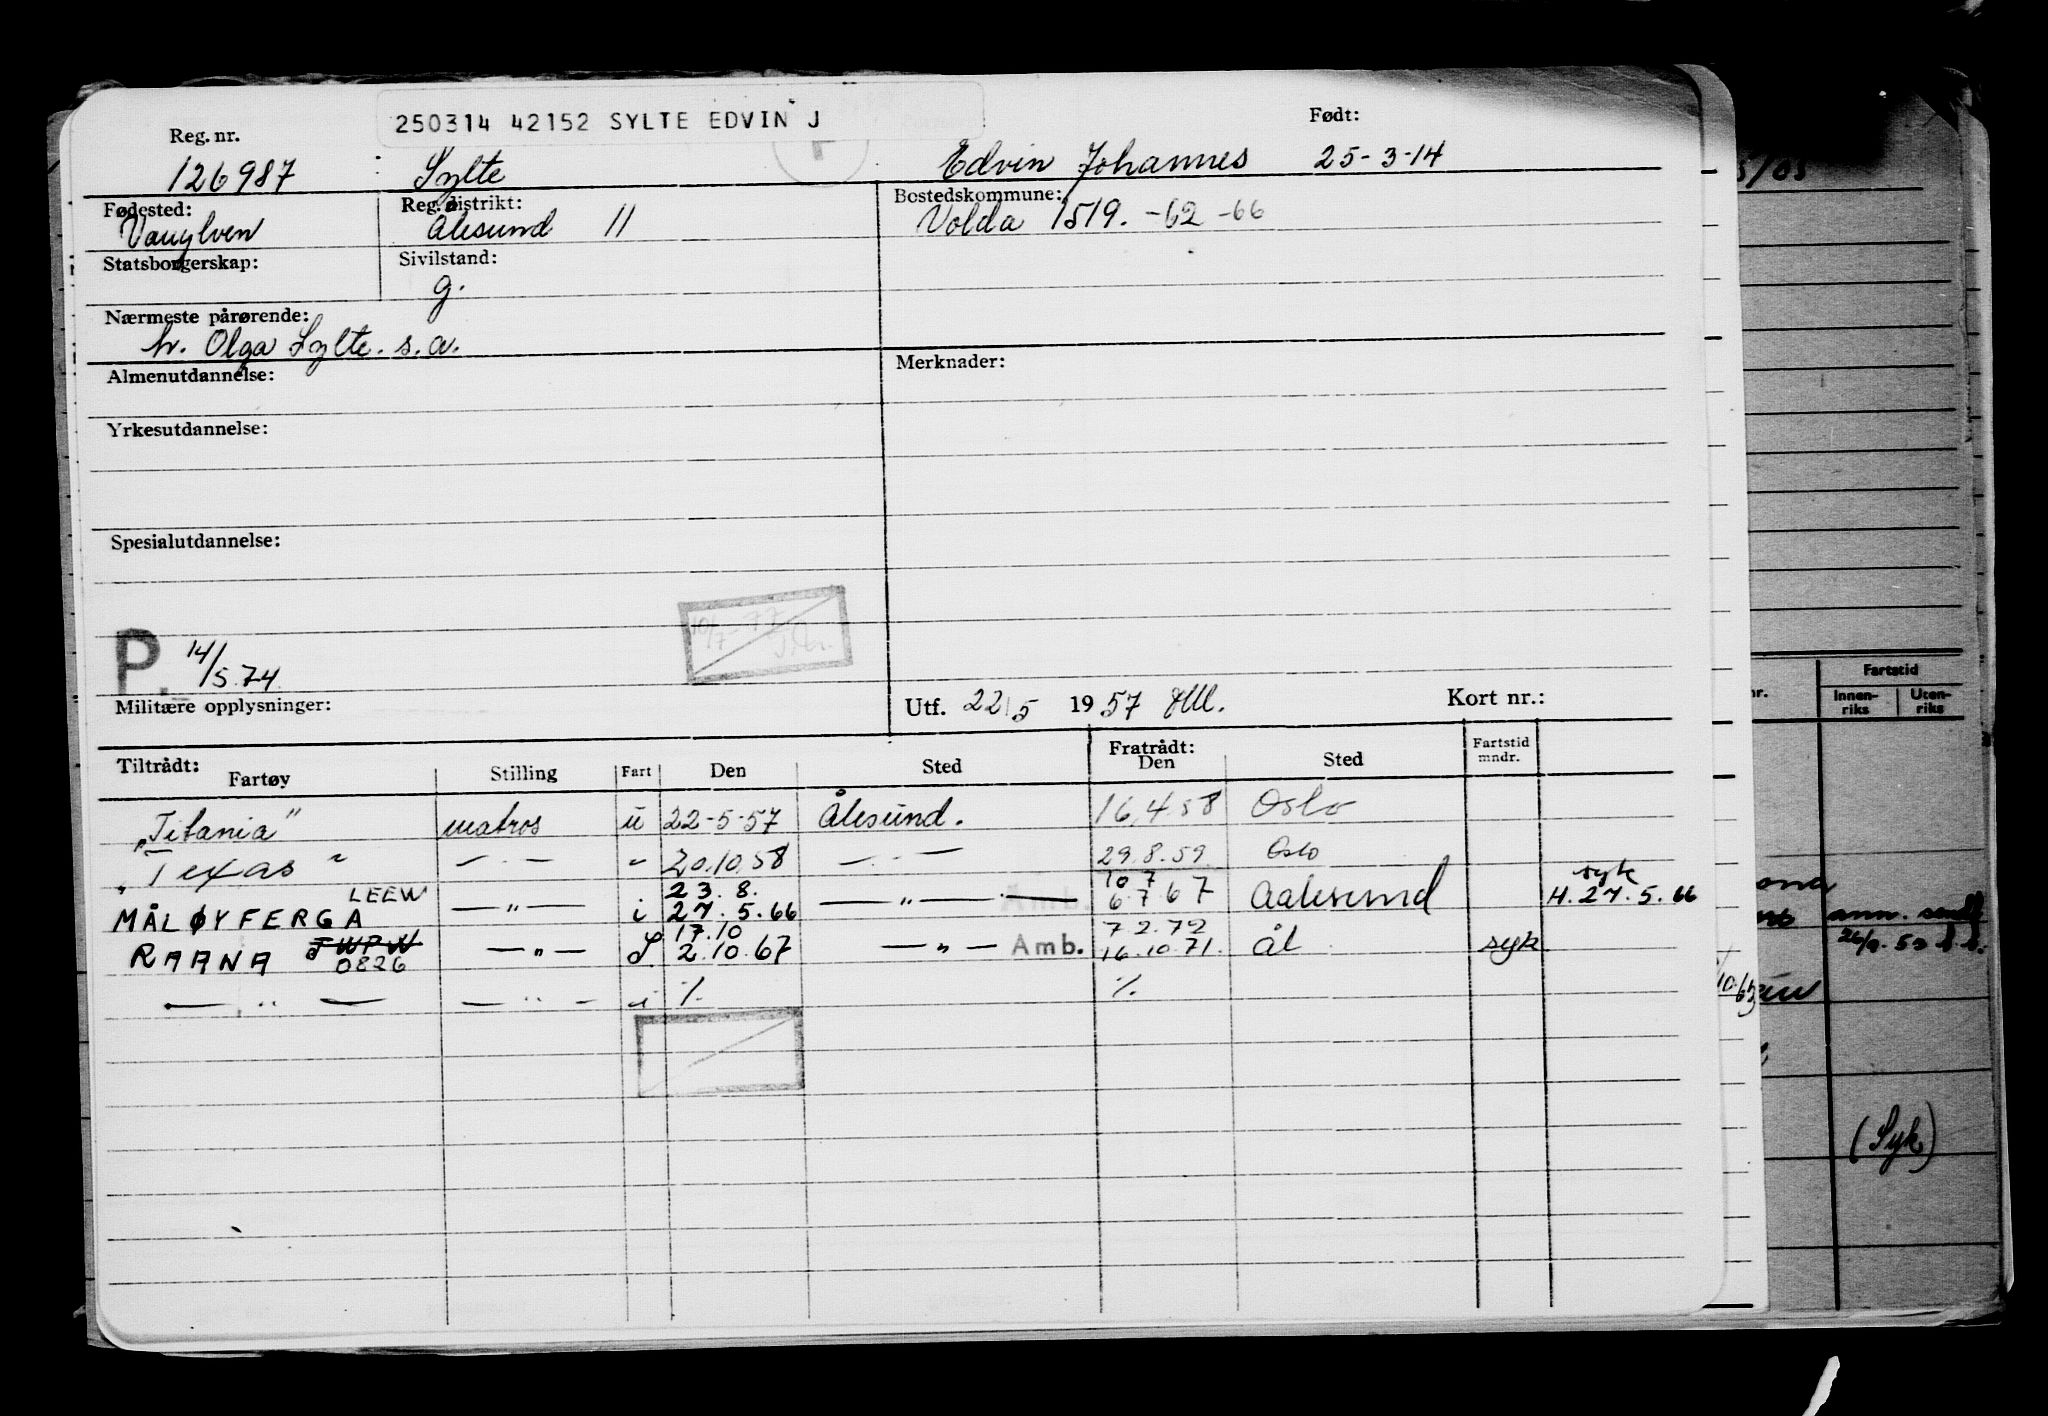 250314 42152 SYLTE EDVIN J
Reg. nr. Født:
126987 Sylte Edvin Johannes 25-3-14
Fødested: Reg. distrikt: Bostedskommune:
Vanylven Ålesund 11 Volda 1519. -62 -66
Statsborgerskap: Sivilstand:
g.
Nærmeste pårørende:
h. Olga Sylte. s. a.
Almenutdannelse: Merknader:
Yrkesutdannelse:
Spesialutdannelse:
10/7-77
P. 14/5.74
Militære opplysninger: Utf. 22/5 1957 Kort nr.:
Tiltrådt: Fratrådt: Fartstid
Fartøy Stilling Fart Den Sted Den Sted mndr.
"Titania" matros u 22-5-57 Ålesund. 16.4.58 Oslo
"Texas" — . — " 20.10.58 — . — 29.8.59 Oslo
LEEW 23.8. 10 7 syk
MÅLØYFERGA — " — i 27.5.66 — " — Amb. 6.7.67 Aalesund H. 27.5.66
JWPW 17.10 7 2.72
RAANA 0826 — " — S 2.10.67 — " — Amb. 16.10.71. Ål syk
— " — — " — i % %
Fartstid
nr. Innen-riks Uten-riks
ann.
(Syk)